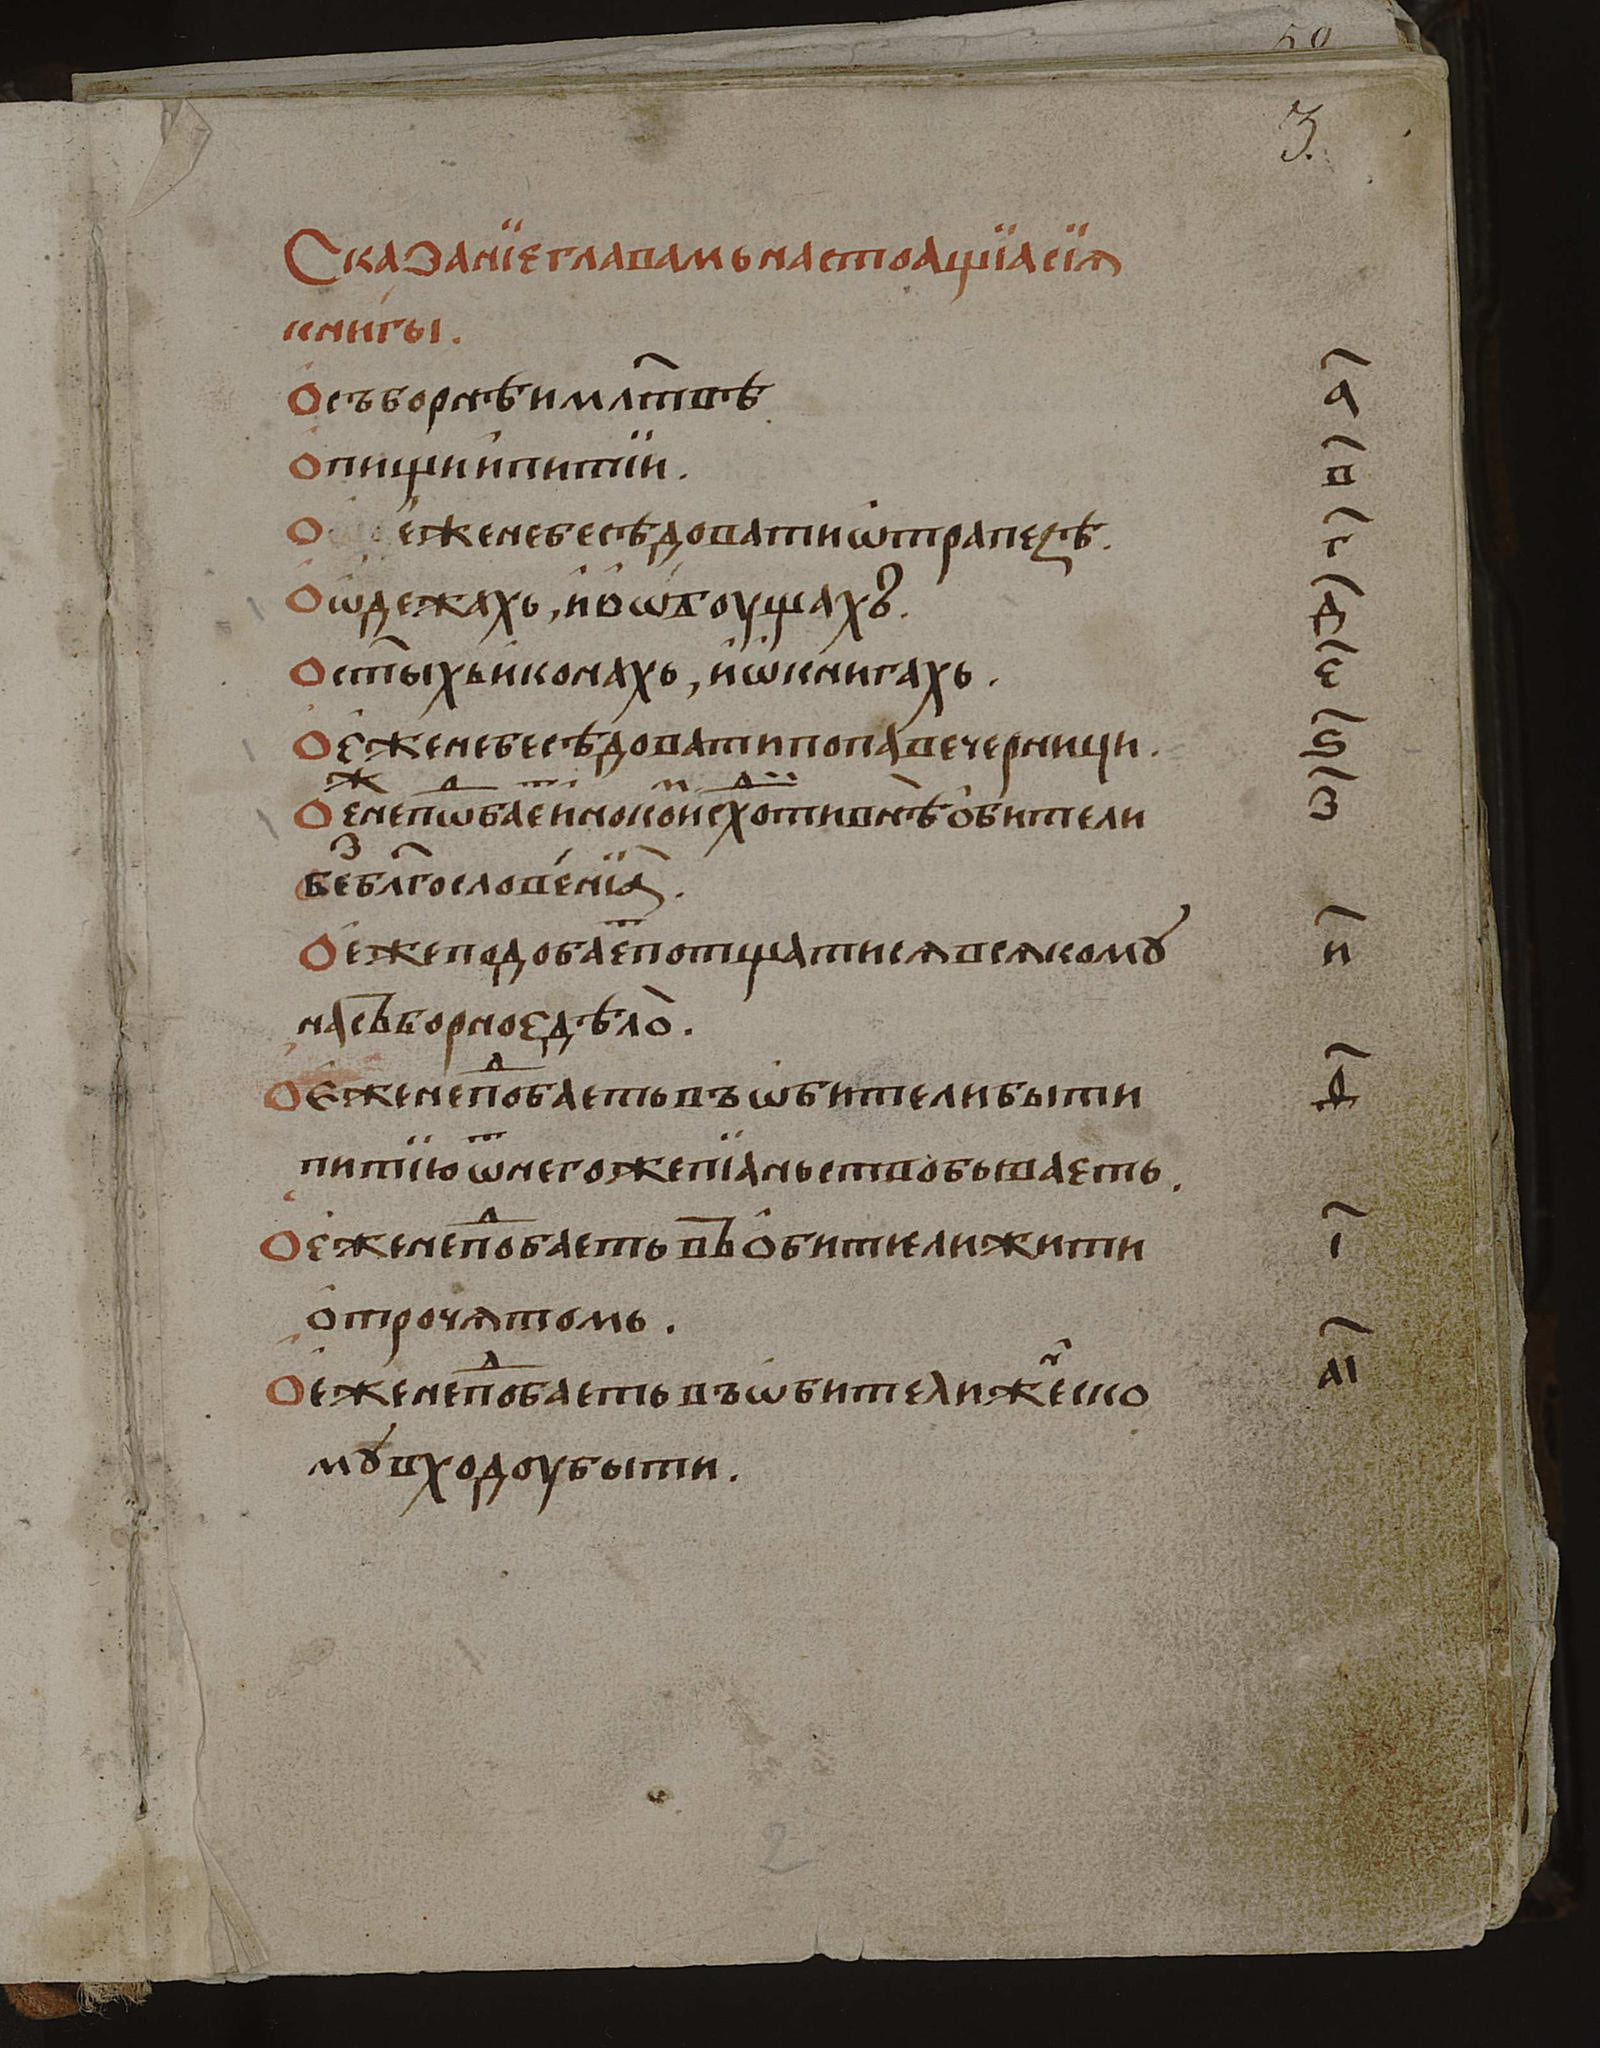 50
3.
Сказанїе главамь настоащїа сїѧ
книгы.
О съборнѣ и млт҃вѣ а҃
О пищи и питїи. в҃
О еже не бесѣдовати ѡ трапеѕѣ. г҃
О ѡдежахь, и о ѡбоущахъ. д҃
О ст҃ыхь иконахь, и ѡ книгахь. е҃
О еже не бесѣдовати по павечерници. ѕ҃
О еⷤ не пⷣѡбаеⷮ инокоⷨ исхоⷣти внѣ обители з҃
беⷥ блг҃ословенїа.
О еже подобаеⷮ потщатисѧ всѧкомꙋ и҃
на съборное дѣло.
О еже не поⷣбаеть въ ѡбители быти ѳ҃
питїю ѿ негоже пїаньство бываеть.
О еже не поⷣбаеть въ обители жити і҃
отрочѧтомь.
О еже не поⷣбаеть въ ѡбители жеⷩско аі
мꙋ входоу быти.
2